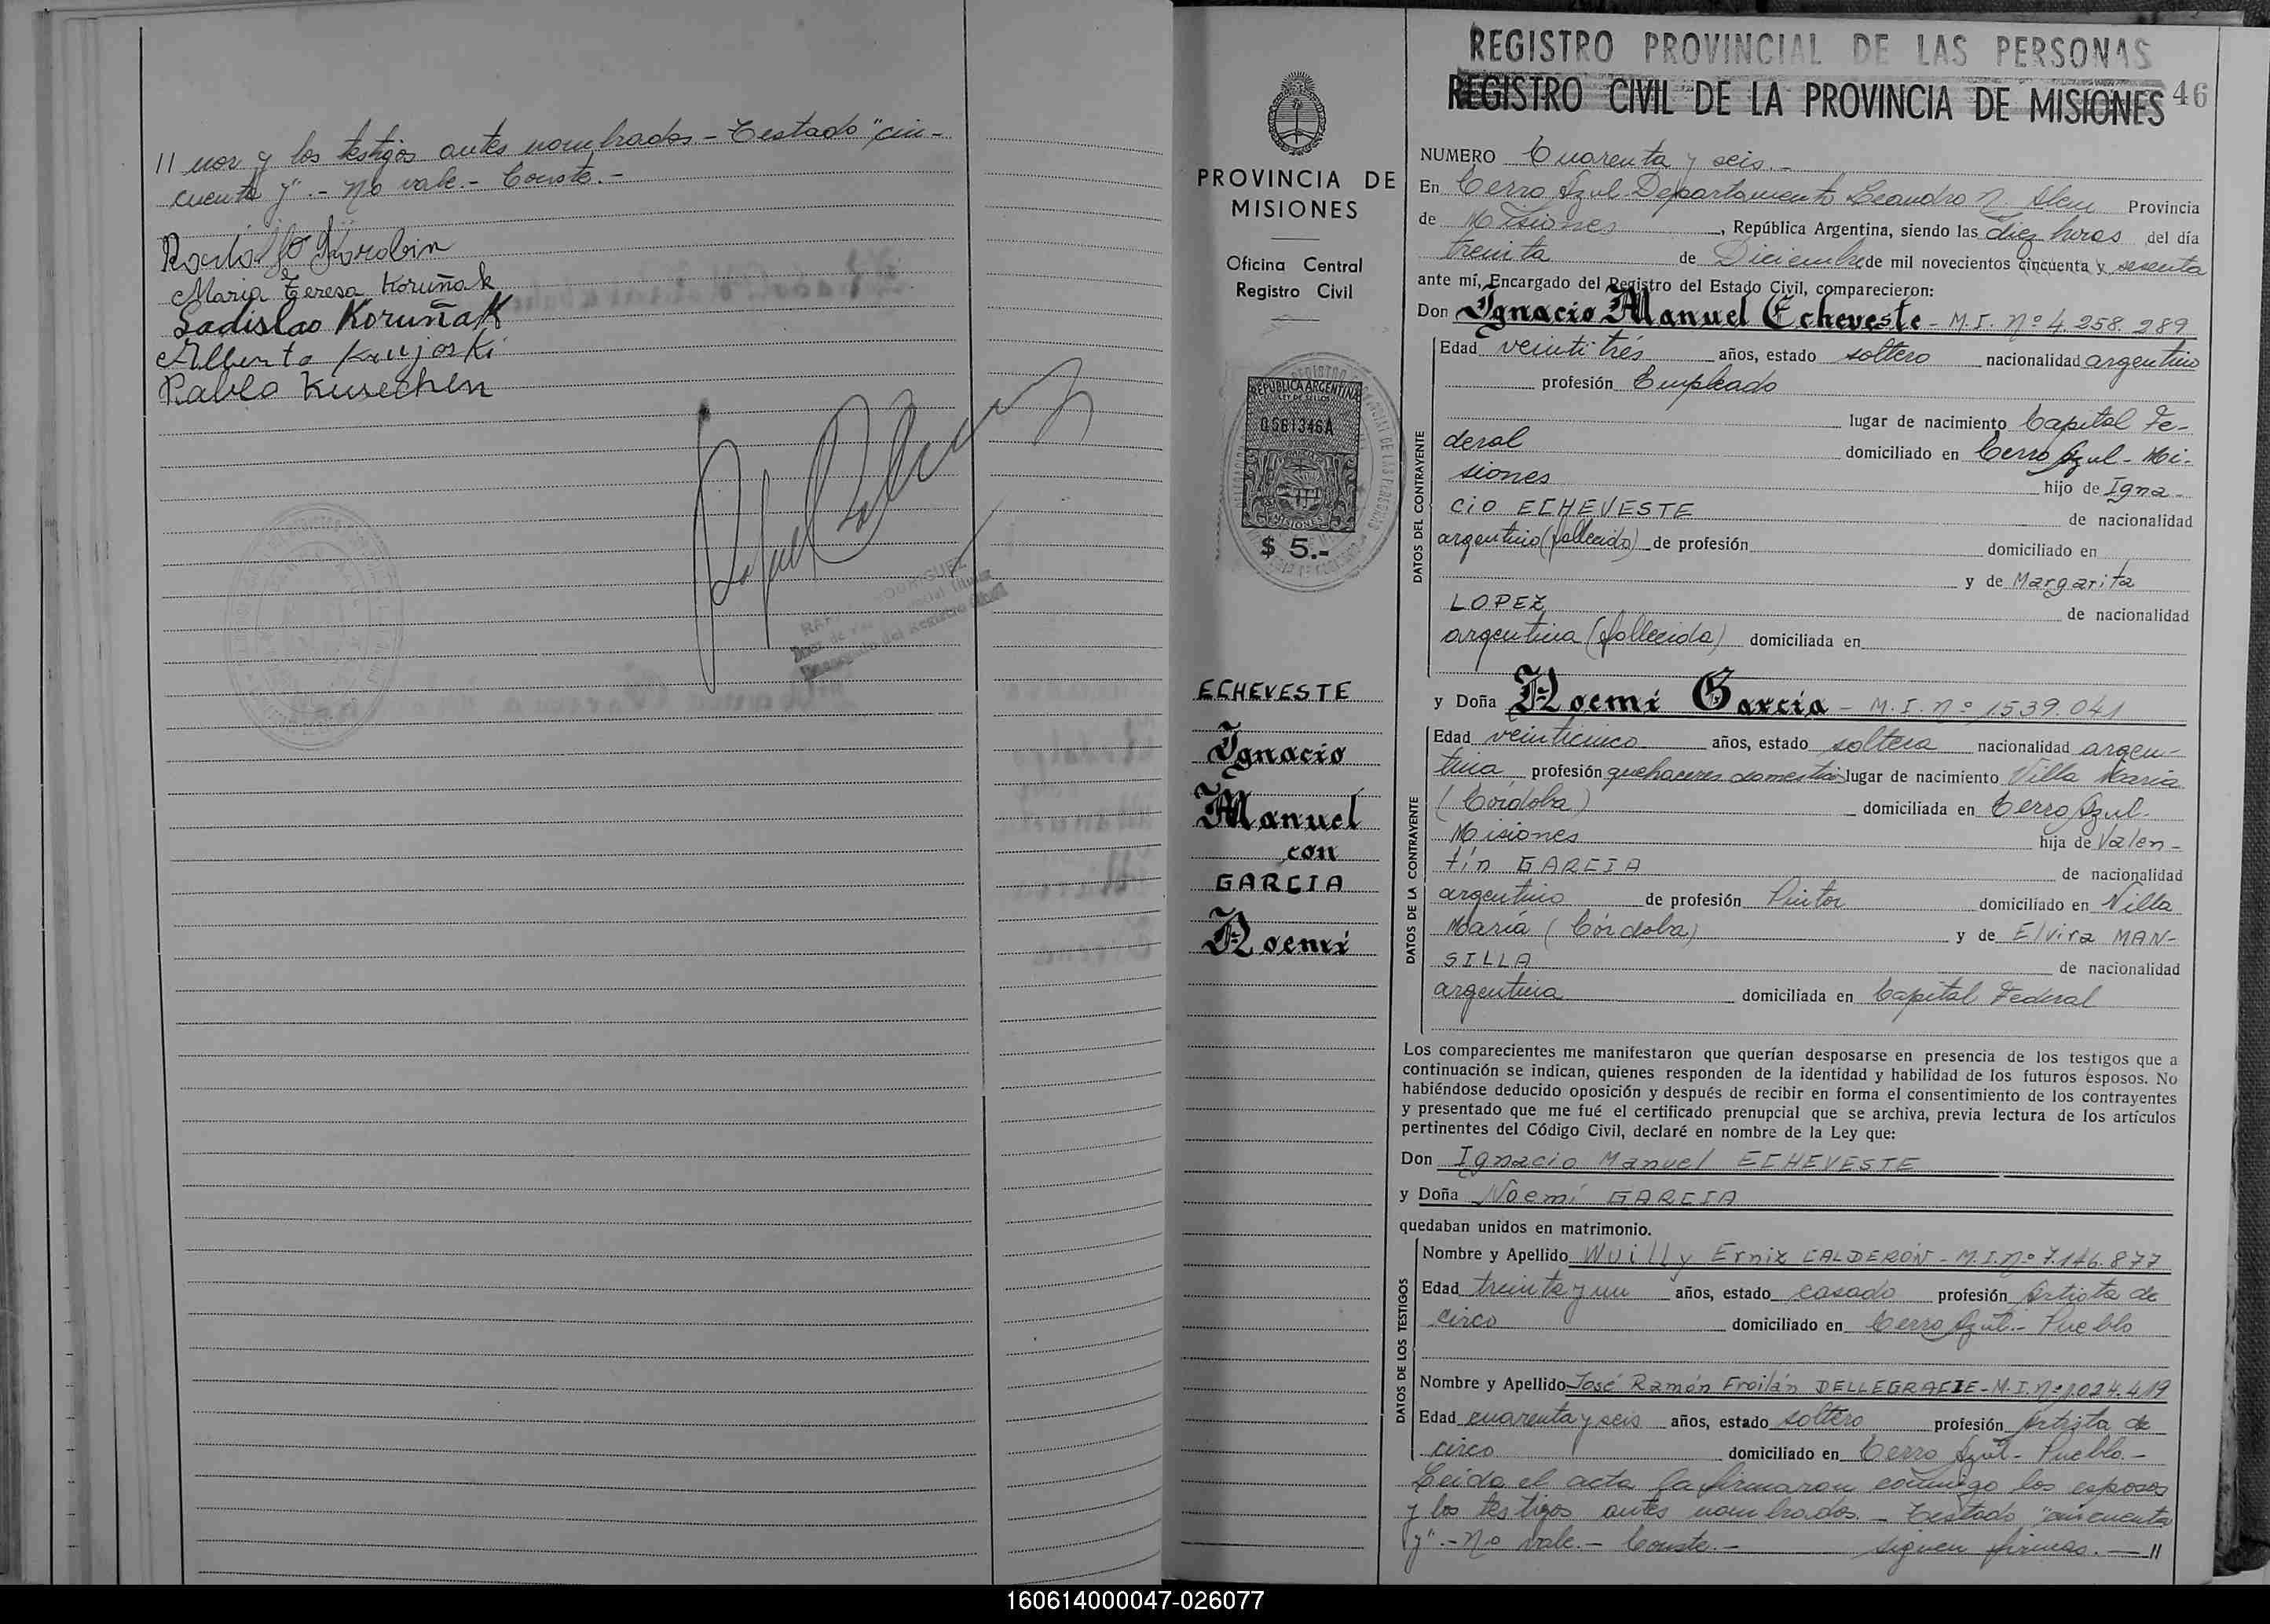 // nor y los testigos antes nombrados - Testado "cin-
cuenta y".- No vale.- Conste.-
Maria Teresa Koruñak
Ladislao Koruñak
Alberto
Pablo
REGISTRO PROVINCIAL DE LAS PERSONAS
REGISTRO CIVIL DE LA PROVINCIA DE MISIONES 46
PROVINCIA DE
MISIONES
Oficina Central
Registro Civil
REPUBLICA ARGENTINA
LEY DE SELLOS
0561346A
MISIONES
$ 5.-
ECHEVESTE
Ignacio
Manuel
con
GARCIA
Noemi
NUMERO Cuarenta y seis.-
En Cerro Azul Departamento Leandro N. Alem Provincia
de Misiones, República Argentina, siendo las diez horas del día
treinta de Diciembre de mil novecientos cincuenta y sesenta
ante mí, Encargado del Registro del Estado Civil, comparecieron:
Don Ignacio Manuel Echeveste - M.I. Nº 4.258.289
DATOS DEL CONTRAYENTE
Edad veintitrés años, estado soltero nacionalidad argentino
profesión Empleado
lugar de nacimiento Capital Fe-
deral domiciliado en Cerro Azul - Mi-
siones hijo de Igna-
cio ECHEVESTE de nacionalidad
argentino (fallecido) de profesión domiciliado en
y de Margarita
LOPEZ de nacionalidad
argentina (fallecida) domiciliada en
y Doña Noemi Garcia - M.I. Nº 1539.041
DATOS DE LA CONTRAYENTE
Edad veinticinco años, estado soltera nacionalidad argen-
tina profesión quehaceres domesticos lugar de nacimiento Villa Maria
(Córdoba) domiciliada en Cerro Azul-
Misiones hija de Valen-
tín GARCIA de nacionalidad
argentino de profesión Pintor domiciliado en Villa
María (Córdoba) y de Elvira MAN-
SILLA de nacionalidad
argentina domiciliada en Capital Federal
Los comparecientes me manifestaron que querían desposarse en presencia de los testigos que a
continuación se indican, quienes responden de la identidad y habilidad de los futuros esposos. No
habiéndose deducido oposición y después de recibir en forma el consentimiento de los contrayentes
y presentado que me fué el certificado prenupcial que se archiva, previa lectura de los artículos
pertinentes del Código Civil, declaré en nombre de la Ley que:
Don Ignacio Manuel ECHEVESTE
y Doña Noemí GARCIA
quedaban unidos en matrimonio.
DATOS DE LOS TESTIGOS
Nombre y Apellido Wuilly Erniz CALDERÓN - M.I. Nº 7.146.877
Edad treinta y un años, estado casado profesión Artista de
circo domiciliado en Cerro Azul.- Pueblo
Nombre y Apellido José Ramón Froilán DELLEGRAZIE - M.I. Nº 1.024.419
Edad cuarenta y seis años, estado soltero profesión Artista de
circo domiciliado en Cerro Azul - Pueblo.-
Leida el acta la firmaron conmigo los esposos
y los testigos antes nombrados. - Testado "cincuenta
y".- No vale.- Conste.- siguen firmas. - //
160614000047-026077